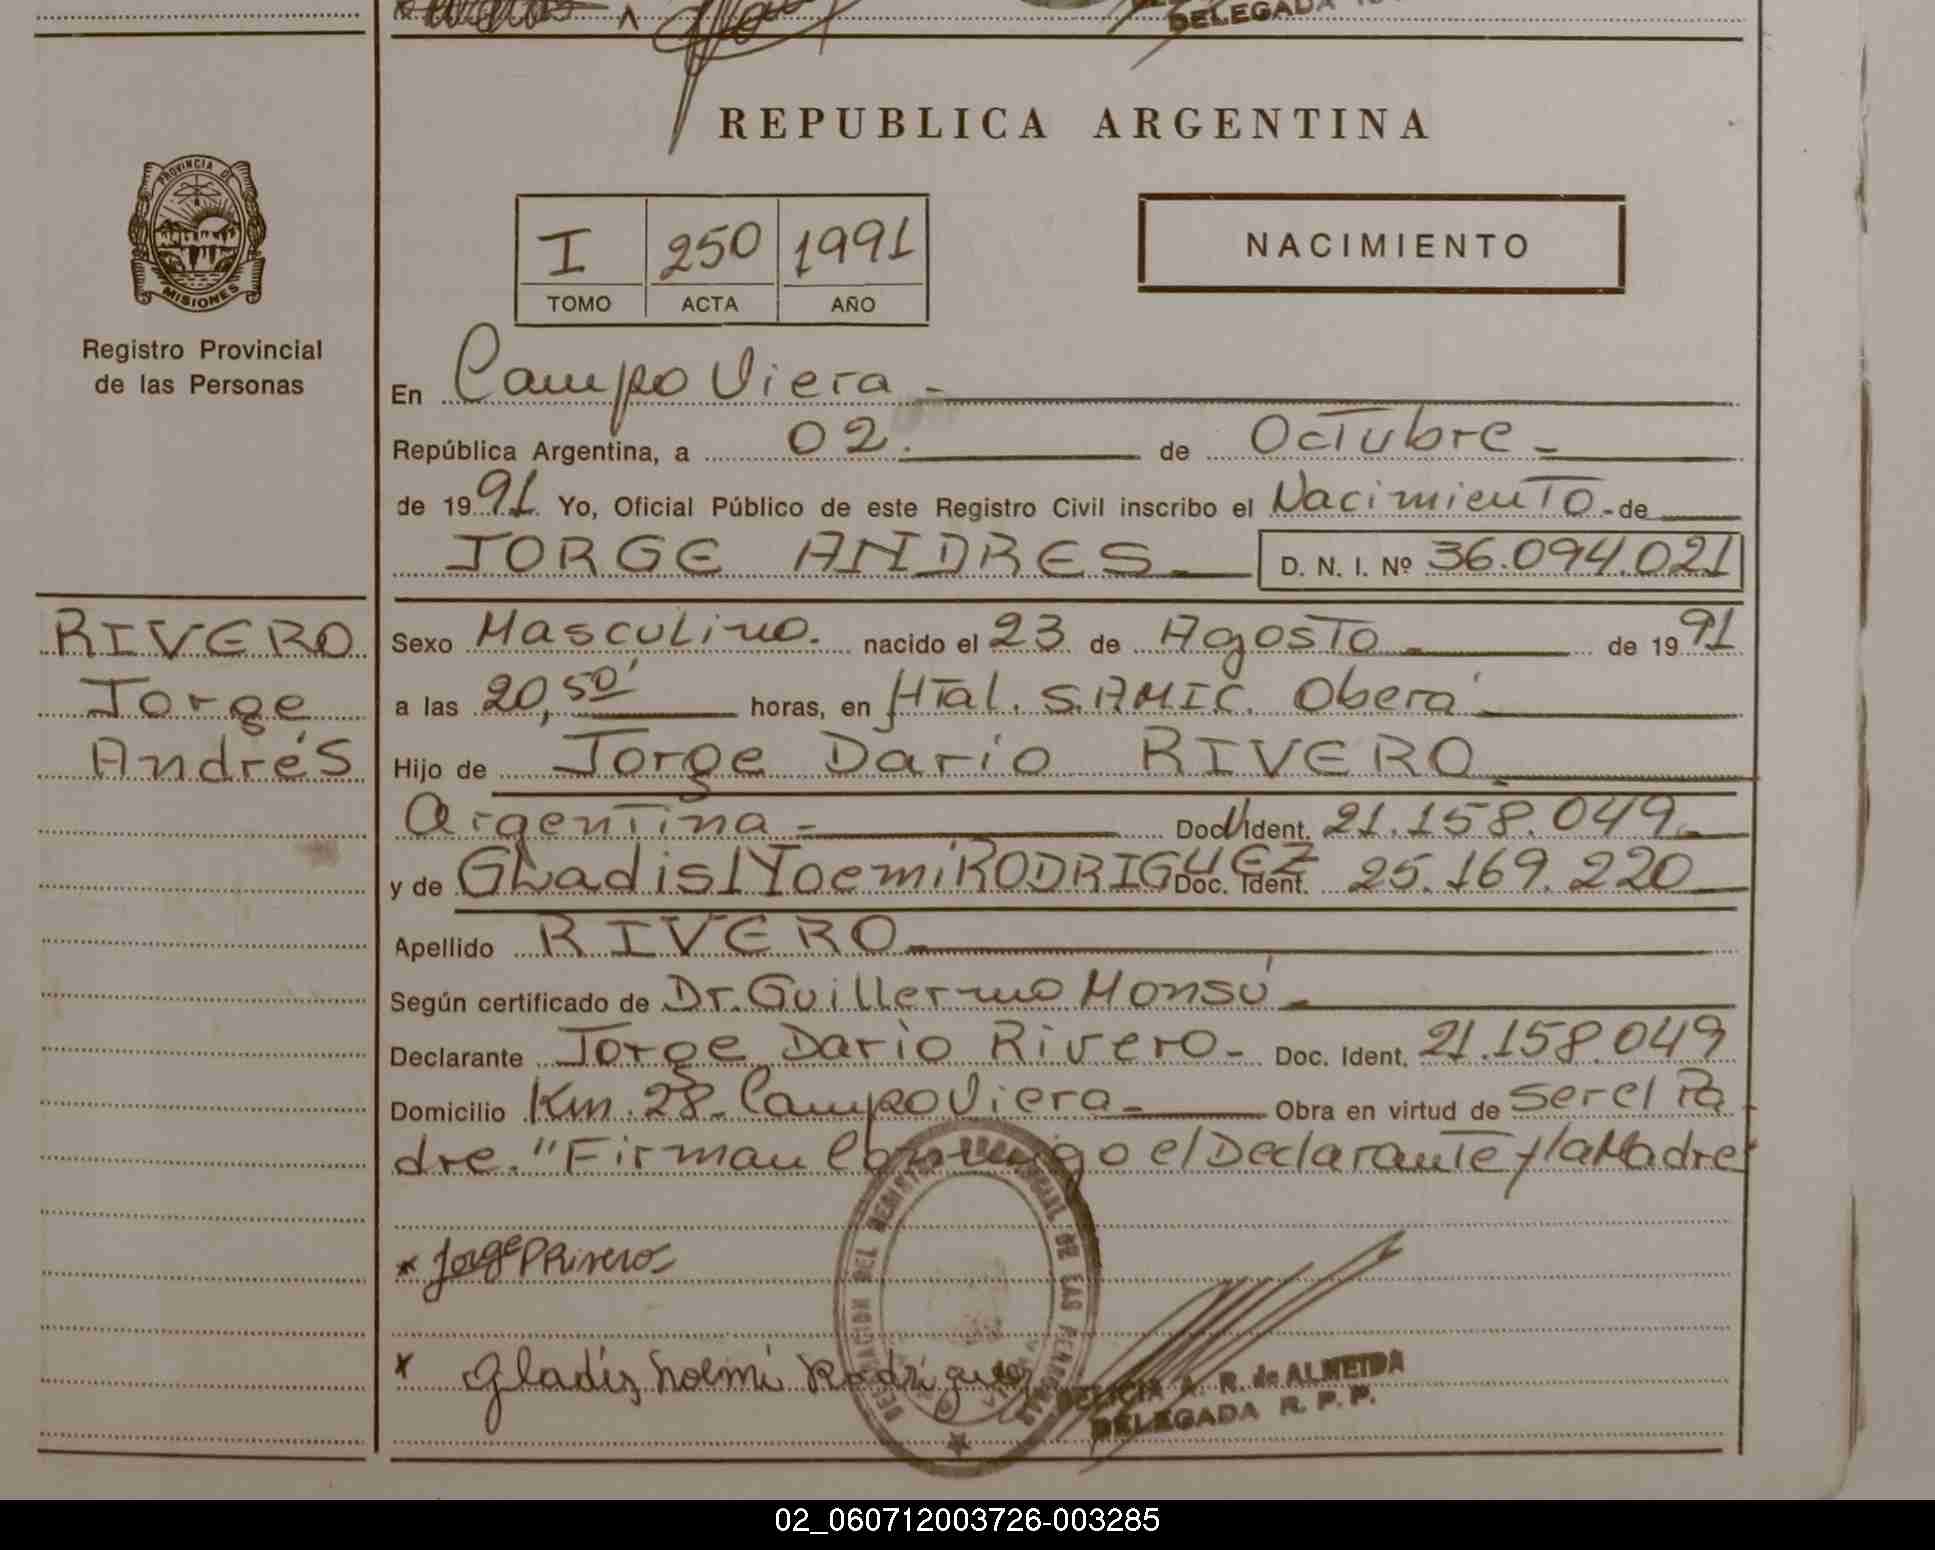 DELEGADA
REPUBLICA ARGENTINA
PROVINCIA DE
MISIONES
Registro Provincial
de las Personas
I 250 1991
TOMO ACTA AÑO
NACIMIENTO
En Campo Viera -
República Argentina, a 02. de Octubre -
de 1991 Yo, Oficial Público de este Registro Civil inscribo el Nacimiento - de
JORGE ANDRES D. N. I. Nº 36.094.021
RIVERO
Jorge
Andrés
Sexo Masculino. nacido el 23 de Agosto de 1991
a las 20,50' horas, en Htal. SAMIC. Oberá
Hijo de Jorge Darío RIVERO
Argentina - Doc. Ident. 21.158.049
y de GLadis Noemi RODRIGUEZ Doc. Ident. 25.169.220
Apellido RIVERO
Según certificado de Dr. Guillermo Monsú
Declarante Jorge Darío Rivero - Doc. Ident. 21.158.049
Domicilio Km. 28 - Campo Viera - Obra en virtud de ser el Pa
dre. "Firman Conmigo el Declarante y la Madre"
x Jorge D Rivero
x Gladis Noemi Rodriguez
DELEGACION DEL REGISTRO PROVINCIAL DE LAS PERSONAS
DELICIA A. R. de ALMEIDA
DELEGADA R. P. P.
02_060712003726-003285